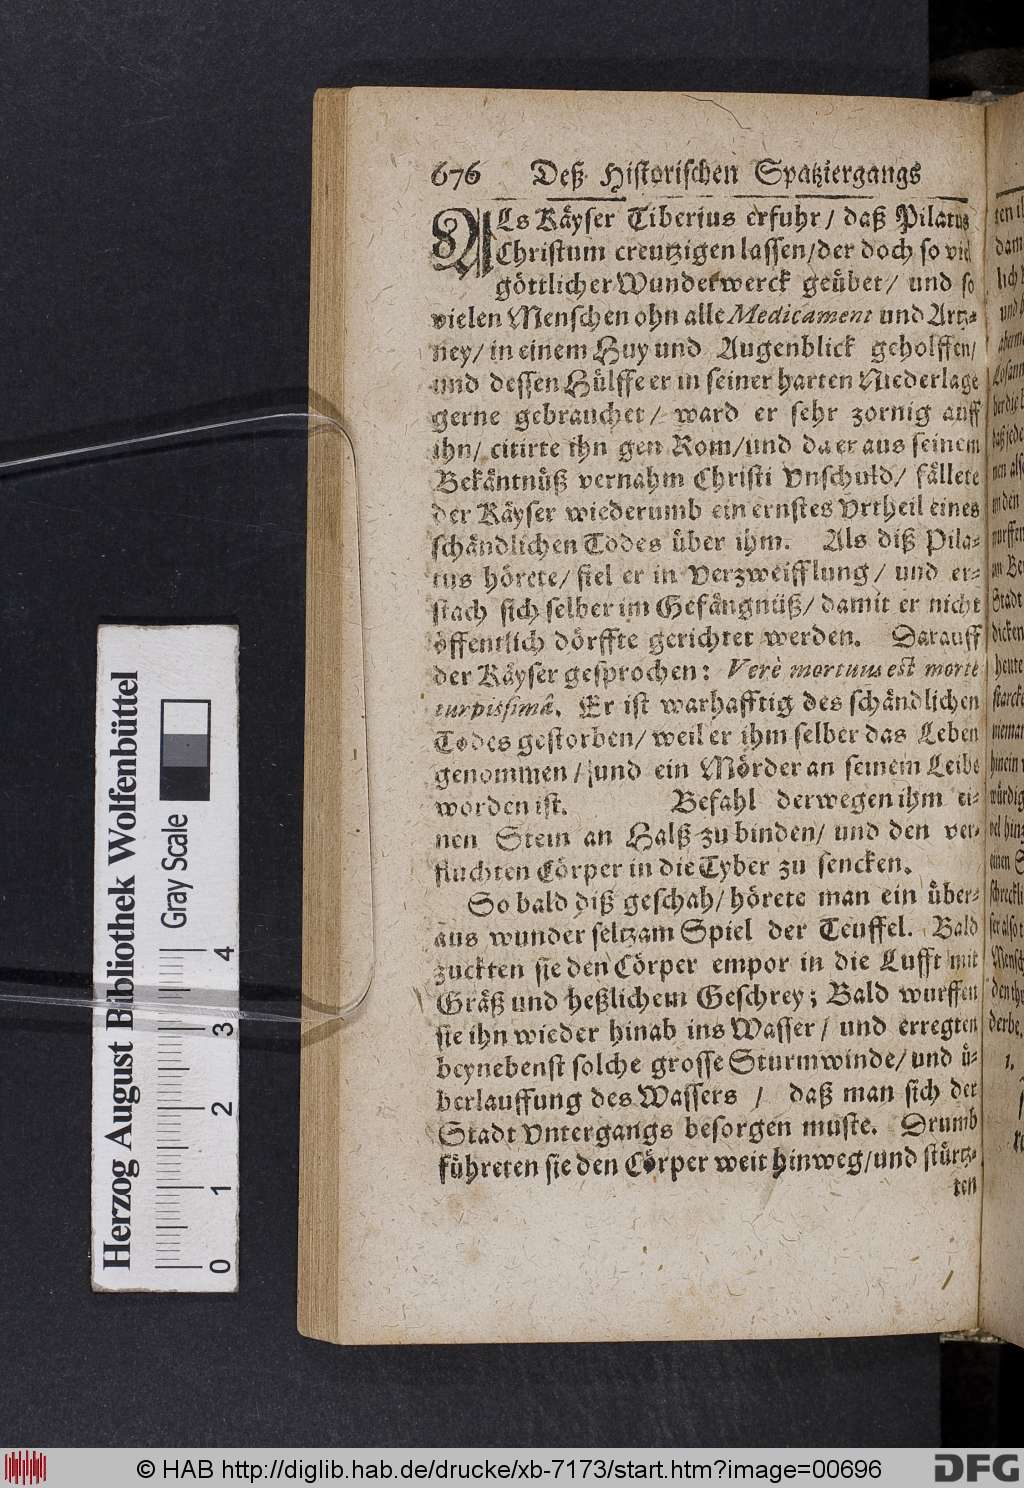 676 Deß Historischen Spatziergangs
ALs Käyser Tiberius erfuhr / daß Pilatus
Christum creutzigen lassen / der doch so viel
göttlicher Wunderwerck geübet / und so
vielen Menschen ohn alle Medicament und Artz-
ney / in einem Huy und Augenblick geholffen /
und dessen Hülffe er in seiner harten Niederlage
gerne gebrauchet / ward er sehr zornig auff
ihn / citirte ihn gen Rom / und da er aus seinem
Bekäntnüß vernahm Christi Vnschuld / fällete
der Käyser wiederumb ein ernstes Vrtheil eines
schändlichen Todes über ihm. Als diß Pila-
tus hörete / fiel er in Verzweifflung / und er-
stach sich selber im Gefängnüß / damit er nicht
öffentlich dörffte gerichtet werden. Darauff
der Käyser gesprochen: Verè mortuus est morte
turpissimâ. Er ist warhafftig des schändlichen
Todes gestorben / weil er ihm selber das Leben
genommen / und ein Mörder an seinem Leibe
worden ist. Befahl derwegen ihm ei-
nen Stein an Halß zu binden / und den ver-
fluchten Cörper in die Tyber zu sencken.
So bald diß geschah / hörete man ein über-
aus wunder seltzam Spiel der Teuffel. Bald
zuckten sie den Cörper empor in die Lufft mit
Gräß und heßlichem Geschrey; Bald wurffen
sie ihn wieder hinab ins Wasser / und erregten
beynebenst solche grosse Sturmwinde / und ü-
berlauffung des Wassers / daß man sich der
Stadt Vntergangs besorgen muste. Drumb
führeten sie den Cörper weit hinweg / und stürtz-
ten
Herzog August Bibliothek Wolfenbüttel
Gray Scale
0 1 2 3 4
© HAB http://diglib.hab.de/drucke/xb-7173/start.htm?image=00696
DFG